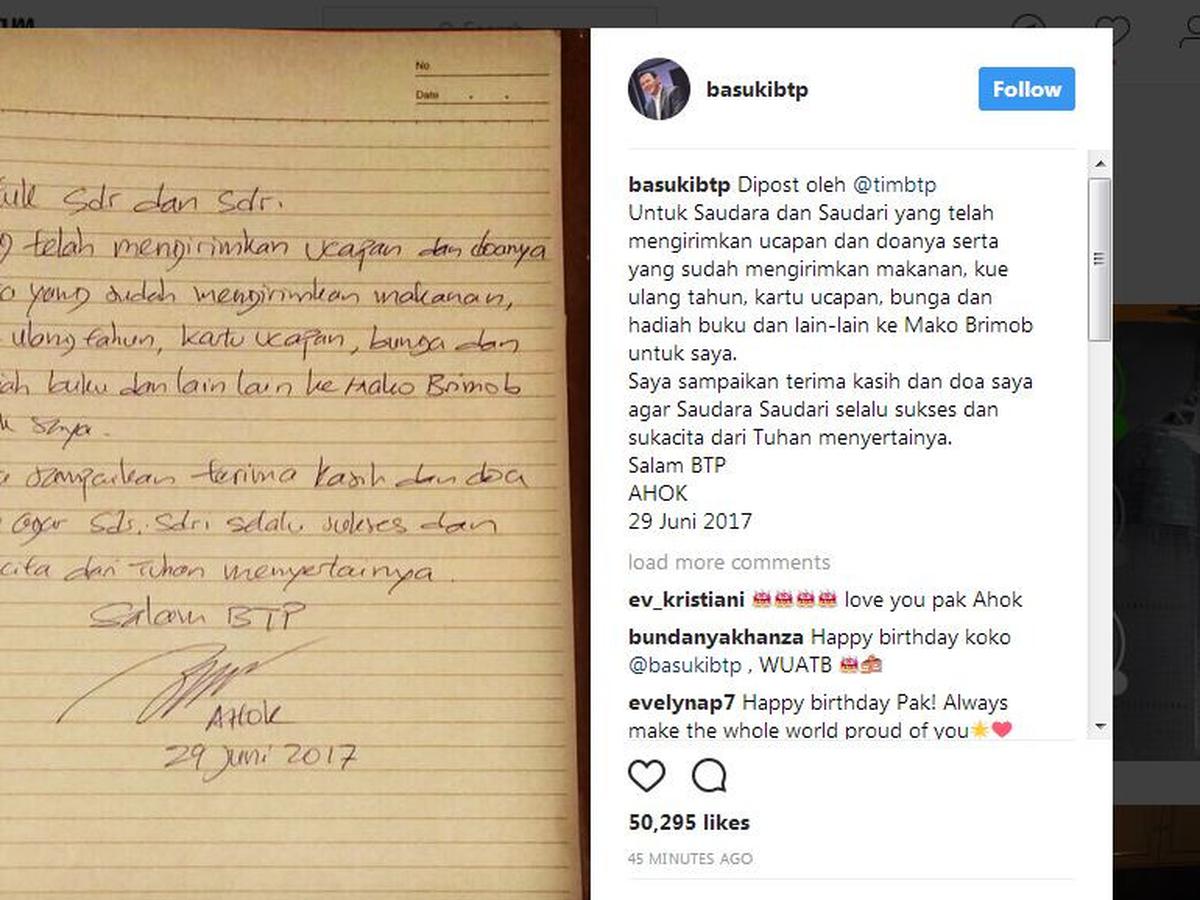 No
Date
Sdr dan Sdri
telah mengirimkan ucapan dan doanya
yang sudah mengirimkan makanan,
ulang tahun, kartu ucapan, bunga dan
buku dan lain lain ke Mako Brimob
saya.
sampaikan terima kasih dan doa
agar Sdr. Sdri selalu sukses dan
dari Tuhan menyertainya.
Salam BTP
AHOK
29 Juni 2017
Search
basukibtp
Follow
basukibtp Dipost oleh @timbtp
Untuk Saudara dan Saudari yang telah
mengirimkan ucapan dan doanya serta
yang sudah mengirimkan makanan, kue
ulang tahun, kartu ucapan, bunga dan
hadiah buku dan lain-lain ke Mako Brimob
untuk saya.
Saya sampaikan terima kasih dan doa saya
agar Saudara Saudari selalu sukses dan
sukacita dari Tuhan menyertainya.
Salam BTP
AHOK
29 Juni 2017
load more comments
ev_kristiani 🎂🎂🎂🎂 love you pak Ahok
bundanyakhanza Happy birthday koko
@basukibtp , WUATB 🎂🍰
evelynap7 Happy birthday Pak! Always
make the whole world proud of you🌟❤
50,295 likes
45 MINUTES AGO